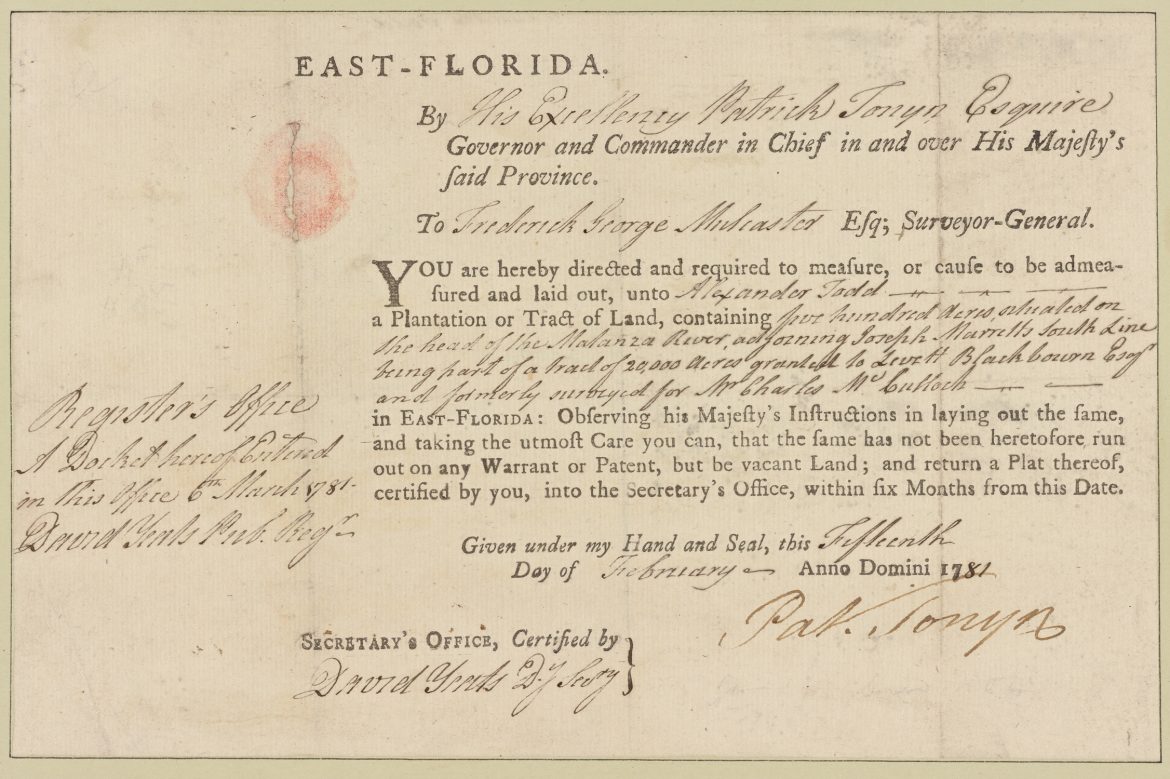 EAST-FLORIDA.
By His Excellency Patrick Tonyn Esquire
Governor and Commander in Chief in and over His Majeſty's
ſaid Province.
To Frederick George Mulcaster Eſq; Surveyor-General.
YOU are hereby directed and required to meaſure, or cauſe to be admea-
ſured and laid out, unto Alexander Todd
a Plantation or Tract of Land, containing five hundred Acres, situated on
the head of the Matanza River, adjoining Joseph Marrells South Line
being part of a tract of 20,000 Acres granted to Levett Blackbourn Esqr
and formerly surveyed for Mr Charles Mc Culloch
in EAST-FLORIDA: Obſerving his Majeſty's Inſtructions in laying out the ſame,
and taking the utmoſt Care you can, that the ſame has not been heretofore run
out on any Warrant or Patent, but be vacant Land; and return a Plat thereof,
certified by you, into the Secretary's Office, within ſix Months from this Date.
Given under my Hand and Seal, this Fifteenth
Day of February Anno Domini 1781
Pat. Tonyn
SECRETARY'S OFFICE, Certified by
David Yeats Dy Secry
Register's Office
A Docket hereof Entered
in this Office 6th March 1781.
David Yeats Pub. Regr